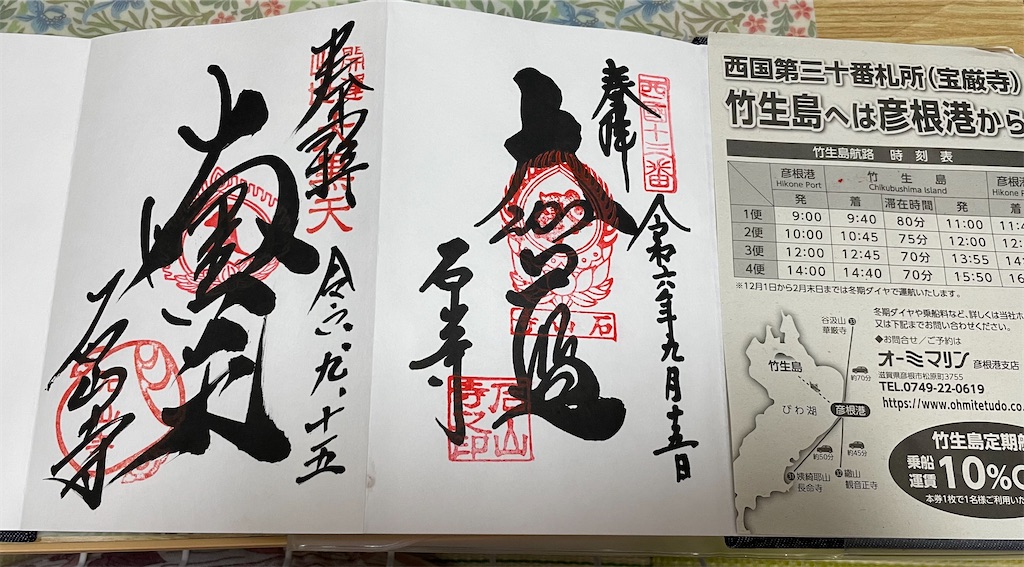 奉拝
令六、九、十五
石山寺
奉拝
西国十三番
令和六年九月十五日
石山寺
石山寺之印
西国第三十番札所(宝厳寺)
竹生島へは彦根港から
竹生島航路 時刻表
彦根港 竹生島 彦根
Hikone Port Chikubushima Island Hikone
発 着 滞在時間 発
1便 9:00 9:40 80分 11:00
2便 10:00 10:45 75分 12:00
3便 12:00 12:45 70分 13:55
4便 14:00 14:40 70分 15:50
※12月1日から2月末日までは冬期ダイヤで運航いたします。
冬期ダイヤや乗船料など、詳しくは当社ホ
又は下記までお問い合わせください。
◆お問合せ/ご予約は
オーミマリン 彦根港支店
滋賀県彦根市松原町3755
TEL.0749-22-0619
https://www.ohmitetudo.co.
谷汲山
華厳寺
33
竹生島
約70分
びわ湖
彦根港
約50分
約45分
31 姨綺耶山
長命寺
32 繖山
観音正寺
竹生島定期船
乗船
運賃 10%O
本券1枚で1名様ご利用いた